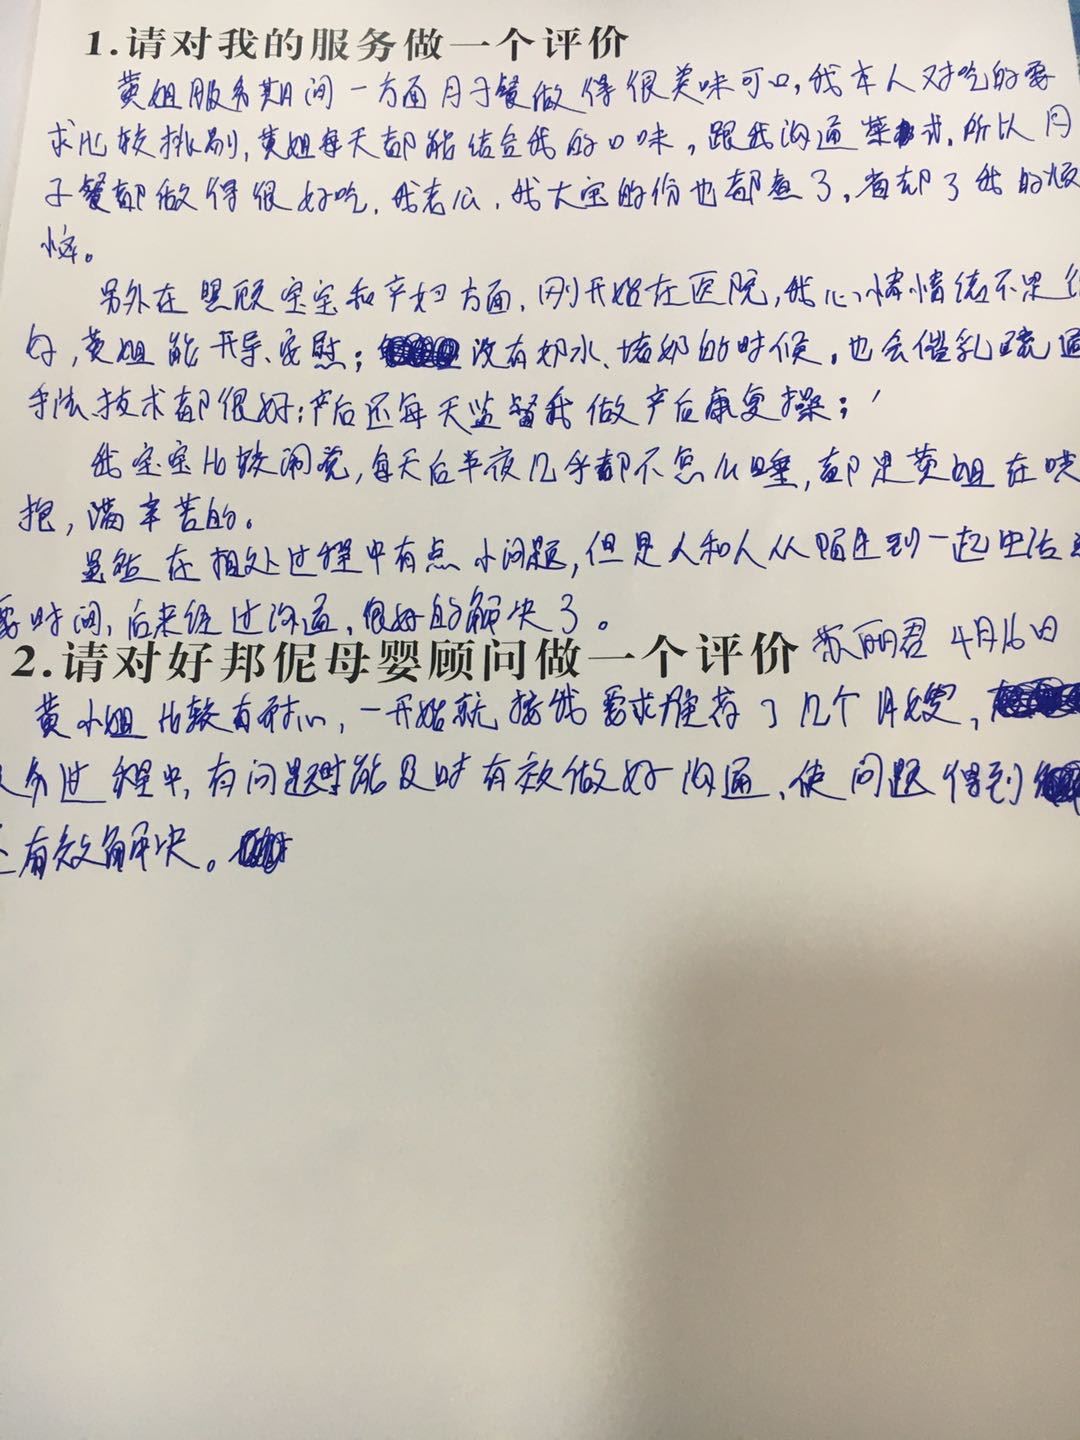 1.请对我的服务做一个评价
黄姐服务期间一方面月子餐做得很美味可口,我本人对吃的要
求比较挑剔,黄姐每天都能结合我的口味,跟我沟通菜式.所以月
子餐都做得很好吃.我老公.我大宝的份也都煮了,省却了我的烦
恼。
另外在照顾宝宝和产妇方面.刚开始在医院,我心情情绪不是很
好,黄姐能开导、安慰;没有奶水、堵奶的时候.也会催乳疏通
手法技术都很好;产后还每天监督我做产后康复操;
我宝宝比较闹觉,每天后半夜几乎都不怎么睡,都是黄姐在哄
抱,满辛苦的。
虽然在相处过程中有点小问题,但是人和人从陌生到一起生活
要时间,后来经过沟通,很好的解决了。
苏丽君 4月16日
2.请对好邦伲母婴顾问做一个评价
黄小姐比较有耐心,一开始就按我要求推荐了几个月嫂,
务过程中,有问题时能及时有效做好沟通、使问题得到
有效解决。